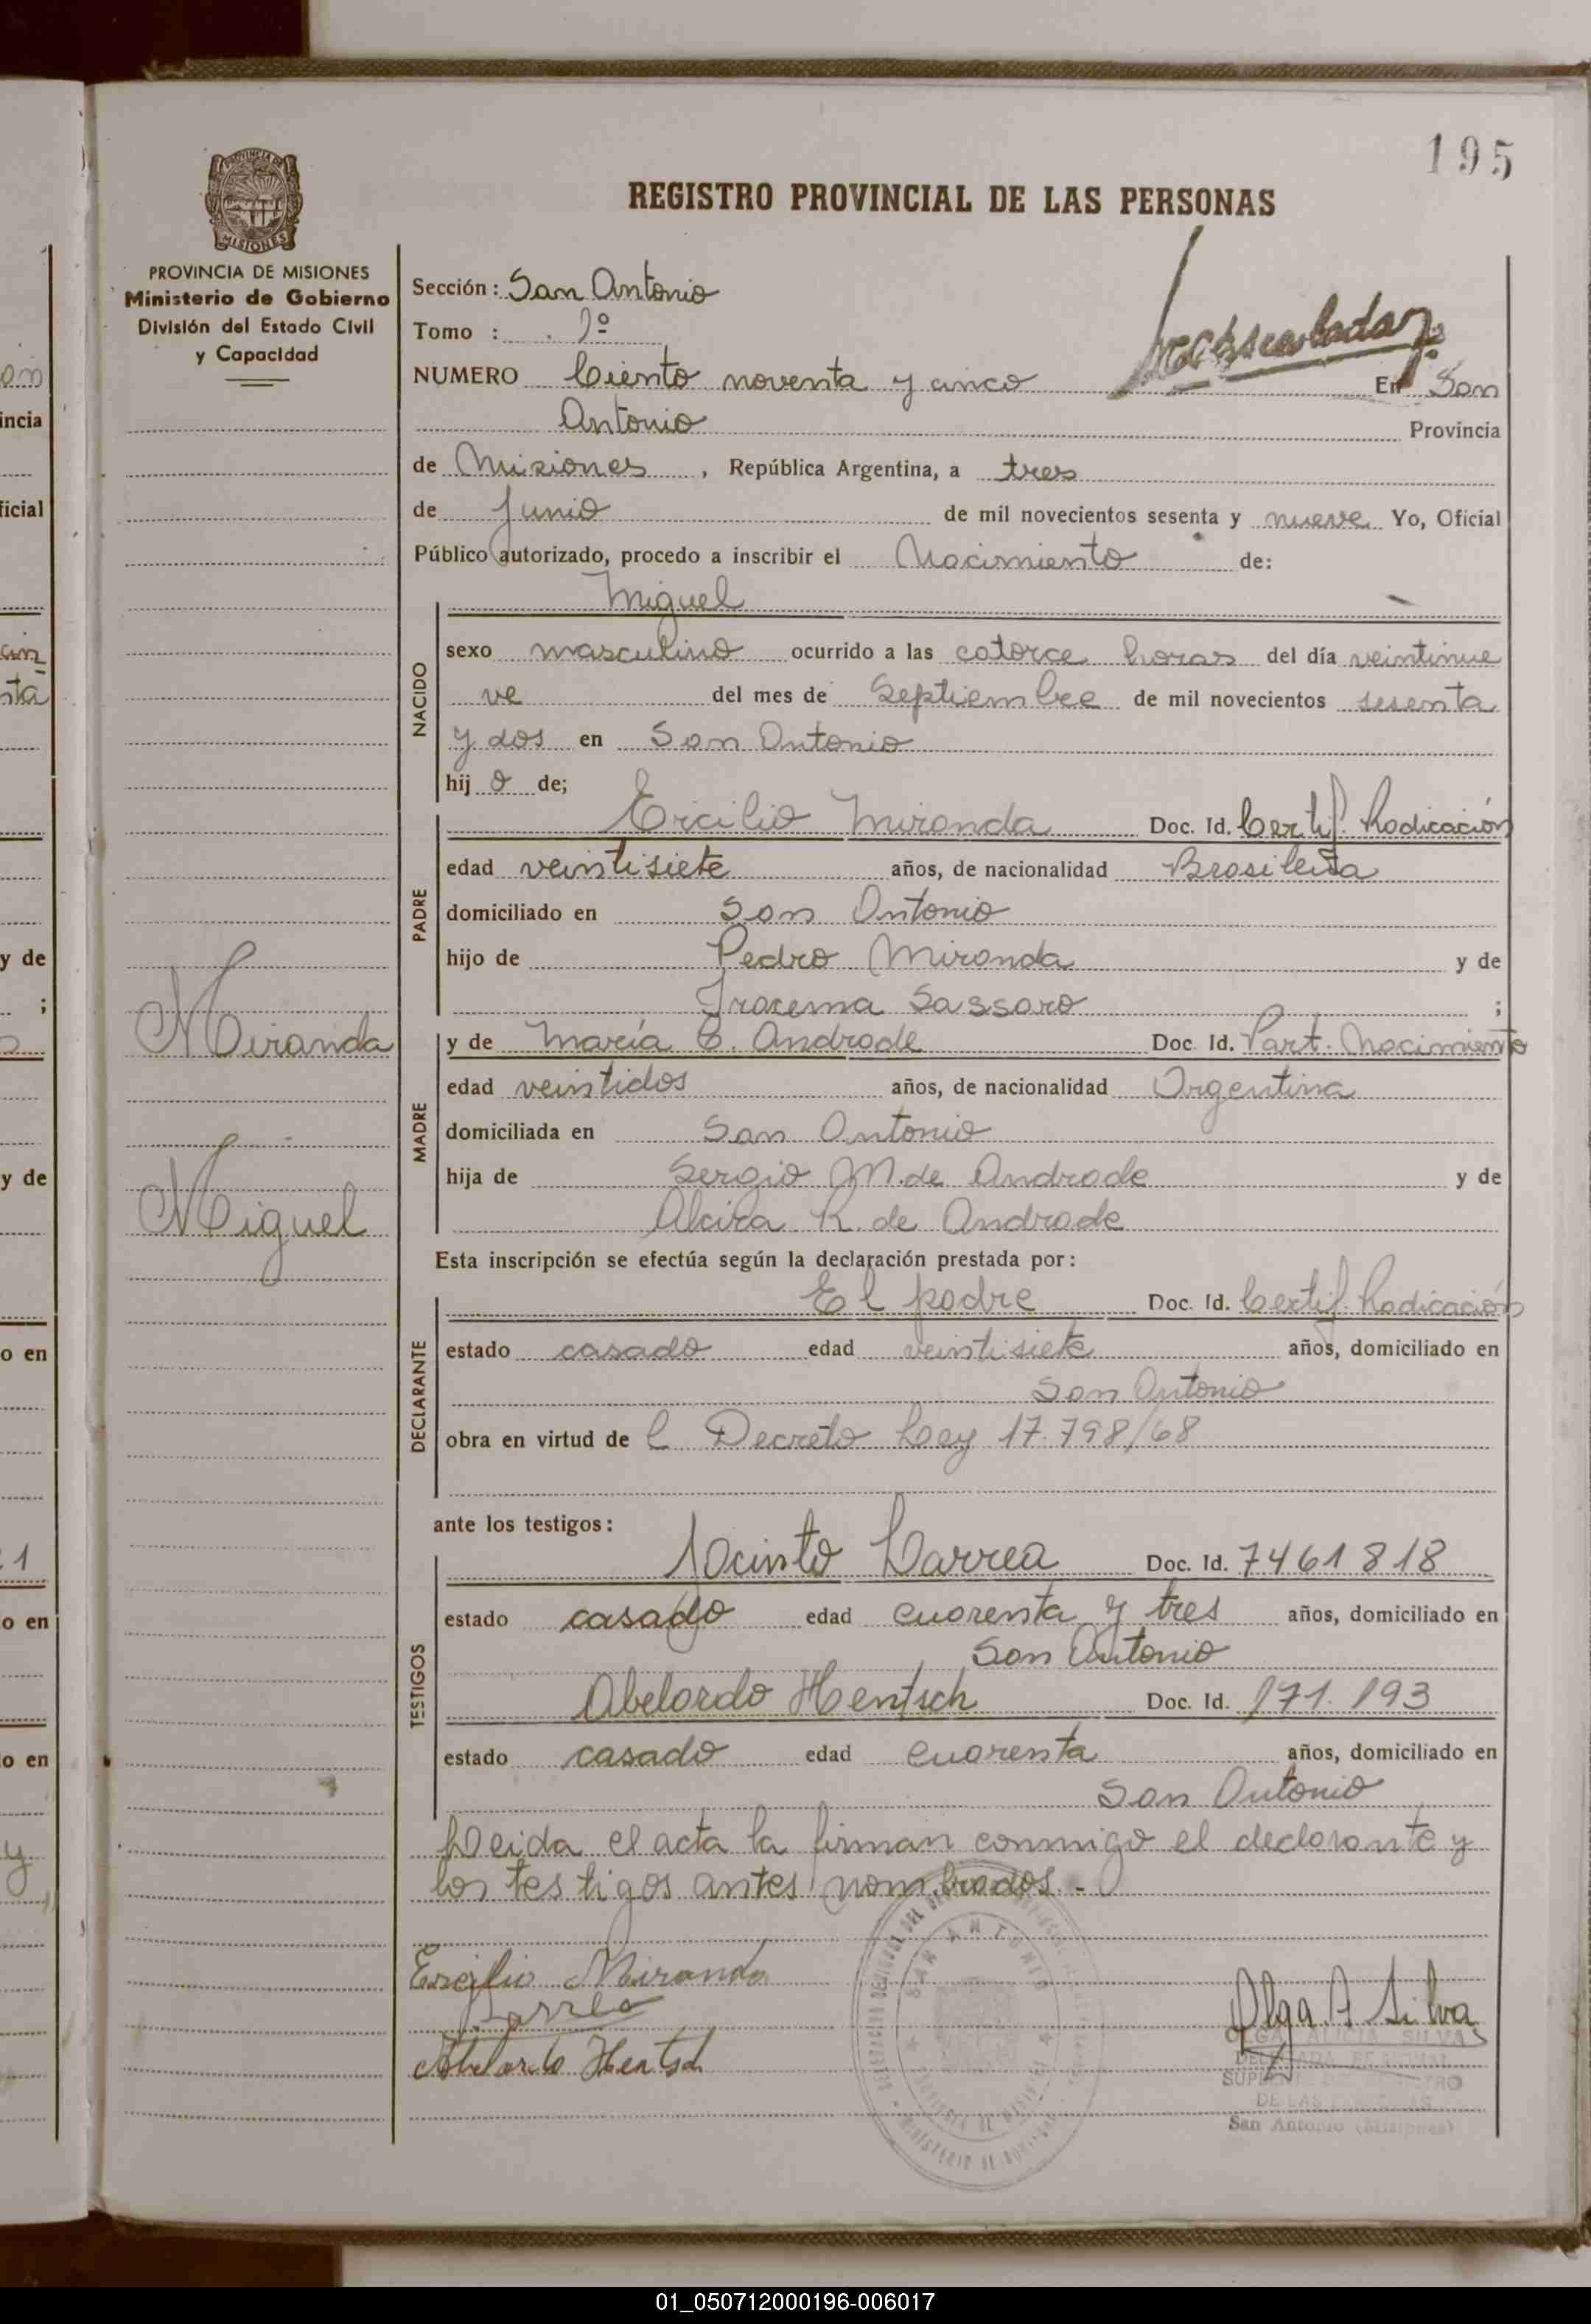 195
REGISTRO PROVINCIAL DE LAS PERSONAS
PROVINCIA DE
MISIONES
PROVINCIA DE MISIONES
Ministerio de Gobierno
División del Estado Civil
y Capacidad
Sección: San Antonio
Tomo : 1º
NUMERO Ciento noventa y cinco En San
Antonio Provincia
de Misiones, República Argentina, a tres
de Junio de mil novecientos sesenta y nueve Yo, Oficial
Público autorizado, procedo a inscribir el Nacimiento de:
NACIDO
Miguel
sexo masculino ocurrido a las catorce horas del día veintinue
ve del mes de Septiembre de mil novecientos sesenta
y dos en San Antonio
hijo de;
PADRE
Ercilio Miranda Doc. Id. Certif. Radicación
edad veintisiete años, de nacionalidad Brasileña
domiciliado en San Antonio
hijo de Pedro Miranda y de
Iracema Sassaro ;
MADRE
y de María C. Andrade Doc. Id. Part. Nacimiento
edad veintidos años, de nacionalidad Argentina
domiciliada en San Antonio
hija de Sergio M. de Andrade y de
Alcira R. de Andrade
Miranda
Miguel
Esta inscripción se efectúa según la declaración prestada por:
DECLARANTE
El padre Doc. Id. Certif. Radicación
estado casado edad veintisiete años, domiciliado en
San Antonio
obra en virtud de l Decreto Ley 17.798/68
ante los testigos:
TESTIGOS
Jacinto Larrea Doc. Id. 7461818
estado casado edad cuarenta y tres años, domiciliado en
San Antonio
Abelardo Hentsch Doc. Id. 171.193
estado casado edad cuarenta años, domiciliado en
San Antonio
Leida el acta la firman conmigo el declarante y
los testigos antes nombrados.-
Ercilio Miranda
Larrea
Abelardo Hentsch
SAN ANTONIO
Olga A Silva
OLGA ALICIA SILVA
San Antonio (Misiones)
on
incia
ficial
y de
;
y de
o en
o en
o en
y
01_050712000196-006017